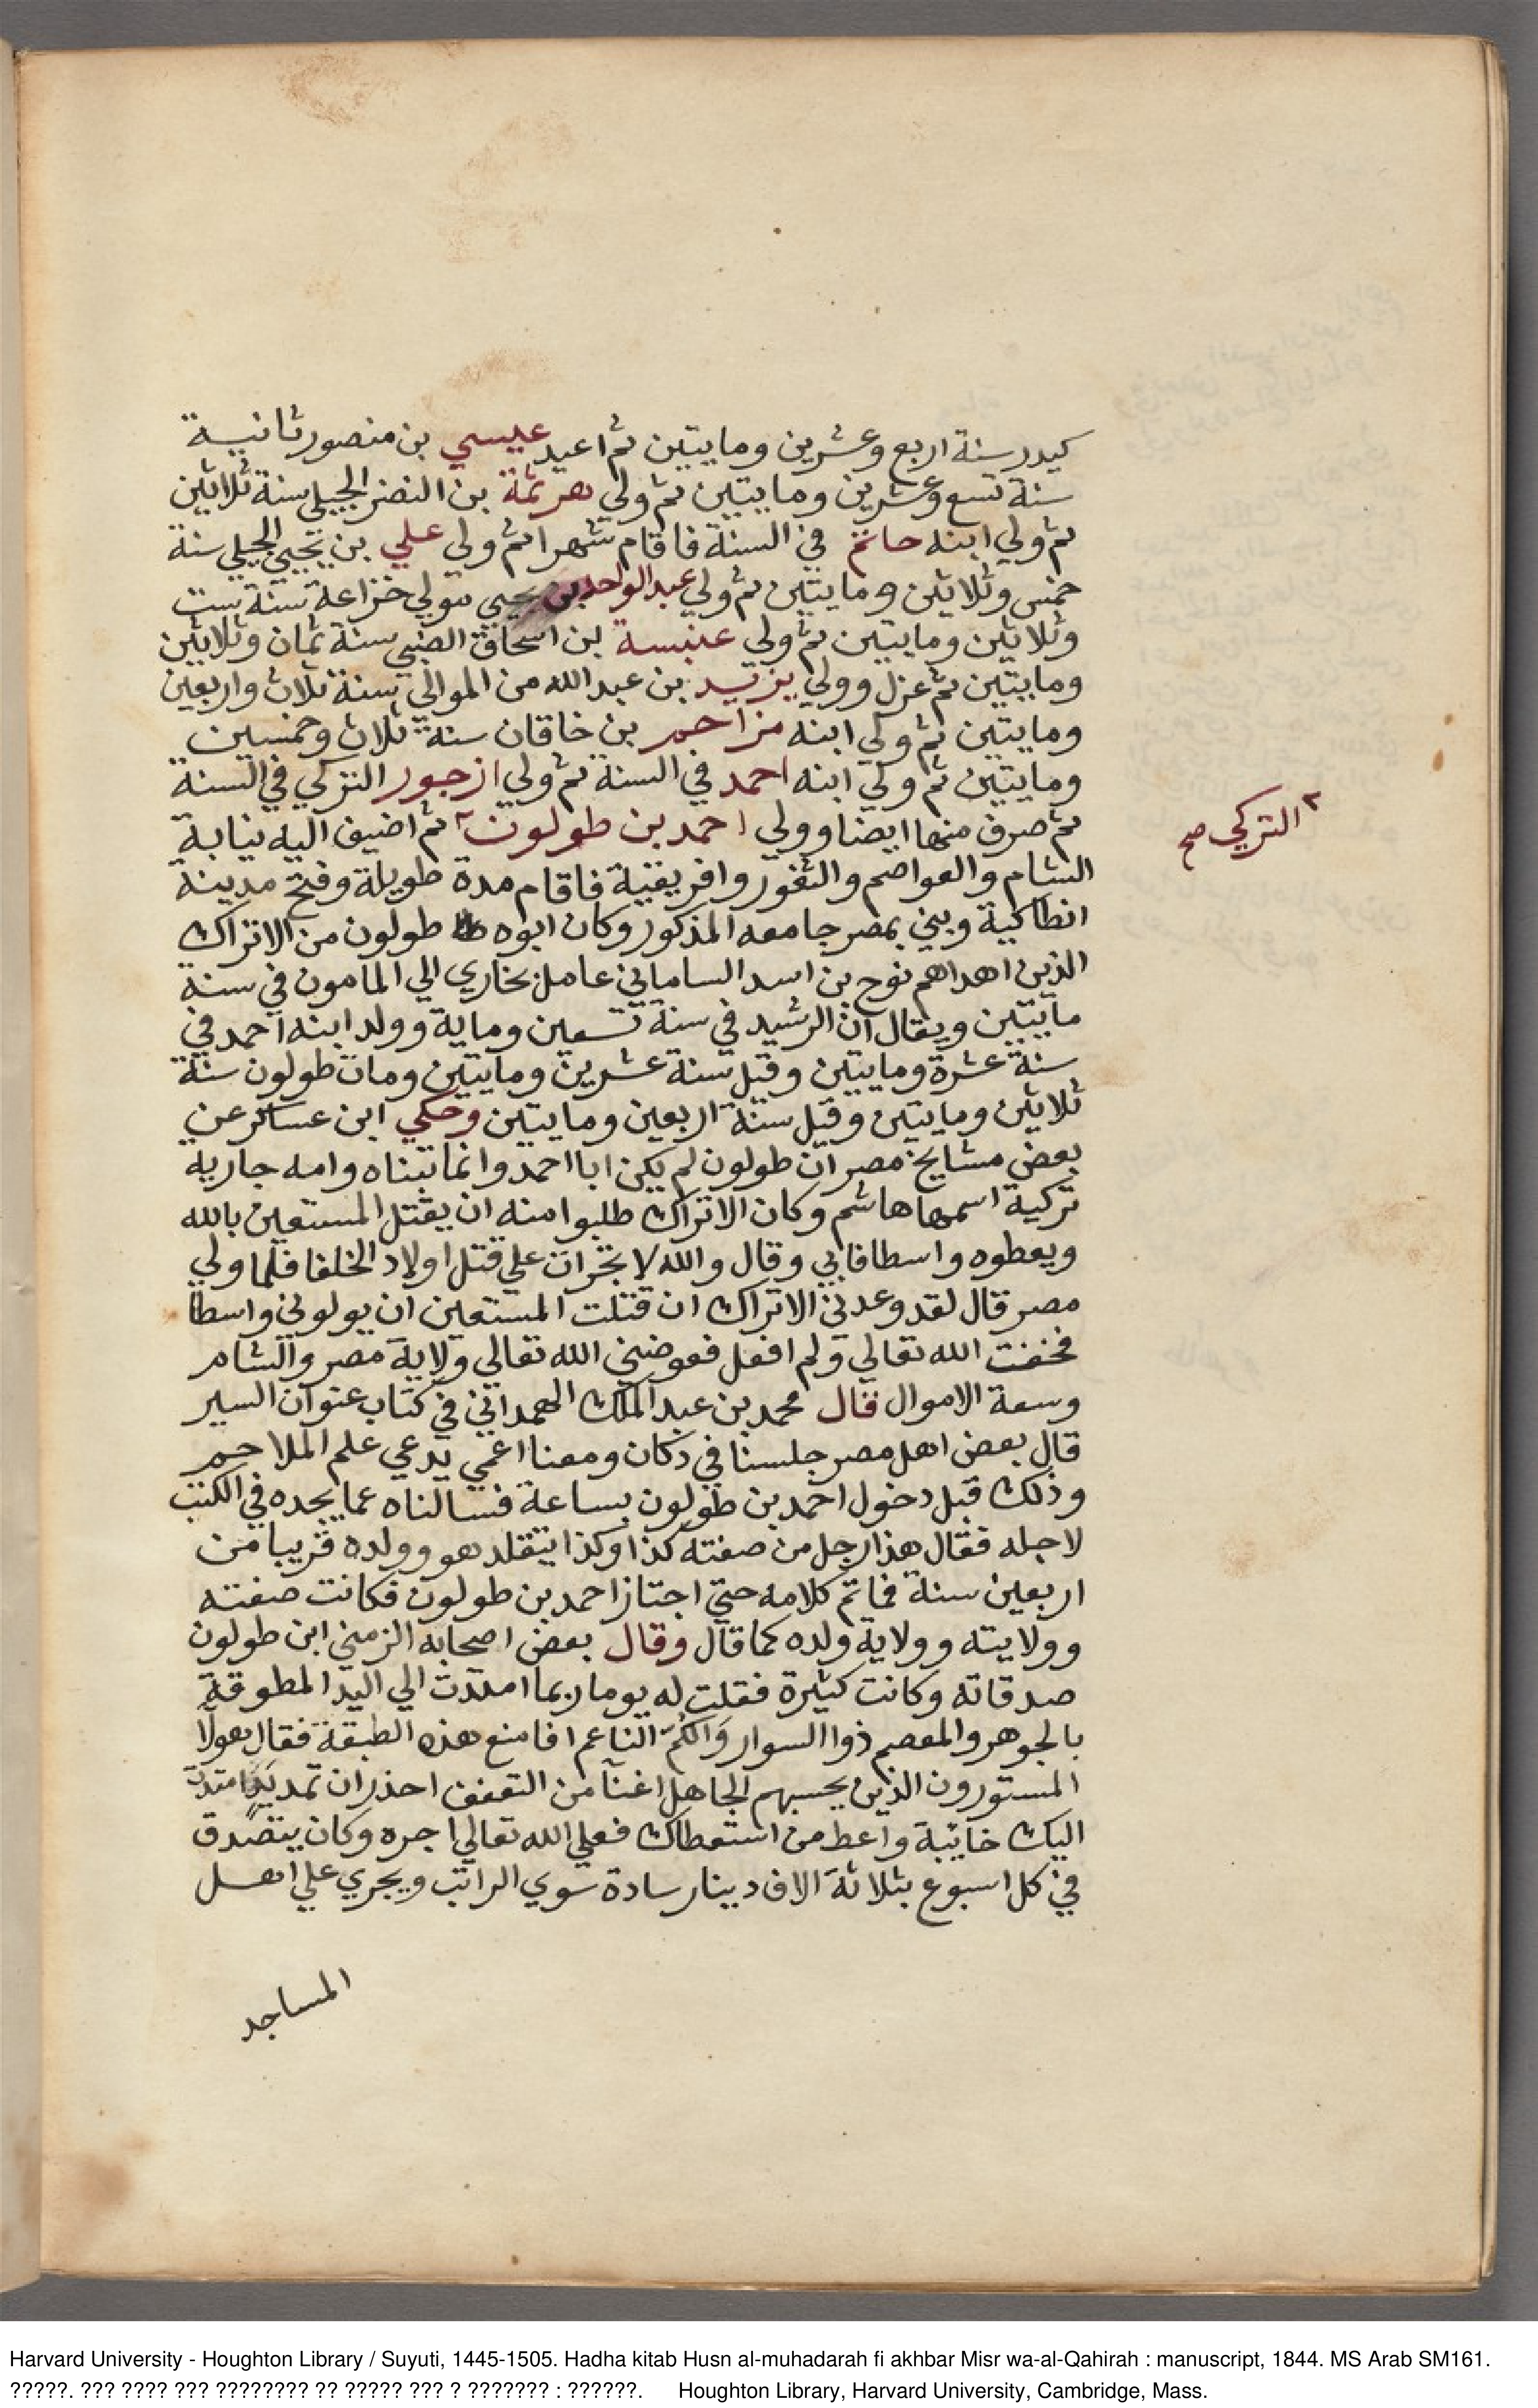 كيدر سنة اربع وعشرين ومايتين ثم اعيد عيسي بن منصور ثانية
سنة تسع وعشرين ومايتين ثم ولي هرثمة بن النضر الجبيلي سنة ثلاثين
ثم ولي ابنه حاتم في السنة فاقام شهرا ثم ولي علي بن يحيي الجيلي سنة
خمس وثلاثين ومايتين ثم ولي عبد الواحد بن يحيي متولي خزاعة سنة ست
وثلاثين ومايتين ثم ولي عنبسة بن اسحاق الضبي سنة ثمان وثلاثين
ومايتين ثم عزل وولي يزيد بن عبد الله من الموالي سنة ثلاث واربعين
ومايتين ثم ولي ابنه مزاحم بن خاقان سنة ثلاث وخمسين
ومايتين ثم ولي ابنه احمد في السنة ثم ولي ازجور التركي في السنة
ثم صرف منها ايضا وولي احمد بن طولون ثم اضيف اليه نيابة
التركي صح
الشام والعواصم والثغور وافريقية فاقام مدة طويلة وفتح مدينة
انطاكية وبني بمصر جامعه المذكور وكان ابوه طولون من الاتراك
الذين اهداهم نوح بن اسد الساماني عامل بخاري الي المامون في سنة
مايتين ويقال ان الرشيد في سنة تسعين وماية وولد ابنه احمد في
سنة عشرة ومايتين وقيل سنة عشرين ومايتين ومات طولون سنة
ثلاثين ومايتين وقيل سنة اربعين ومايتين وحكي ابن عساكر عن
بعض مشايخ مصر ان طولون لم يكن ابا احمد وانما تبناه وامه جارية
تركية اسمها هاشم وكان الاتراك طلبوا منه ان يقتل المستعين بالله
ويعطوه واسطا فابي وقال والله لا تجرات علي قتل اولاد الخلفا فلما ولي
مصر قال لقد وعدني الاتراك ان قتلت المستعين ان يولوني واسطا
فخفت الله تعالي ولم افعل فعوضني الله تعالي ولاية مصر والشام
وسعة الاموال قال محمد بن عبد الملك الهمداني في كتاب عنوان السير
قال بعض اهل مصر جلسنا في دكان ومعنا اعمي يدعي علم الملاحم
وذلك قبل دخول احمد بن طولون بساعة فسالناه عما يجده في الكتب
لاجله فقال هذا رجل من صفته كذا وكذا يتقلد هو وولده قريبا من
اربعين سنة فما تم كلامه حتي اجتاز احمد بن طولون فكانت صفته
وولايته وولاية ولده كما قال وقال بعض اصحابه الزمني ابن طولون
صدقاته وكانت كثيرة فقلت له يوما ربما امتدت الي اليد المطوقة
بالجوهر والمعصم ذوا السوار والكُمّ الناعم افامنع هذه الطبقة فقال هولآ
المستورون الذين يحسبهم الجاهل اغنيآ من التعفف احذر ان تمد يد امتدت
اليك خايبة واعط من استعطاك فعلي الله تعالي اجره وكان يتصدق
في كل اسبوع بثلاثة الاف دينار سادة سوي الراتب ويجري علي اهل
المساجد
Harvard University - Houghton Library / Suyuti, 1445-1505. Hadha kitab Husn al-muhadarah fi akhbar Misr wa-al-Qahirah : manuscript, 1844. MS Arab SM161.
?????. ??? ???? ??? ???????? ?? ????? ??? ? ??????? : ??????. Houghton Library, Harvard University, Cambridge, Mass.